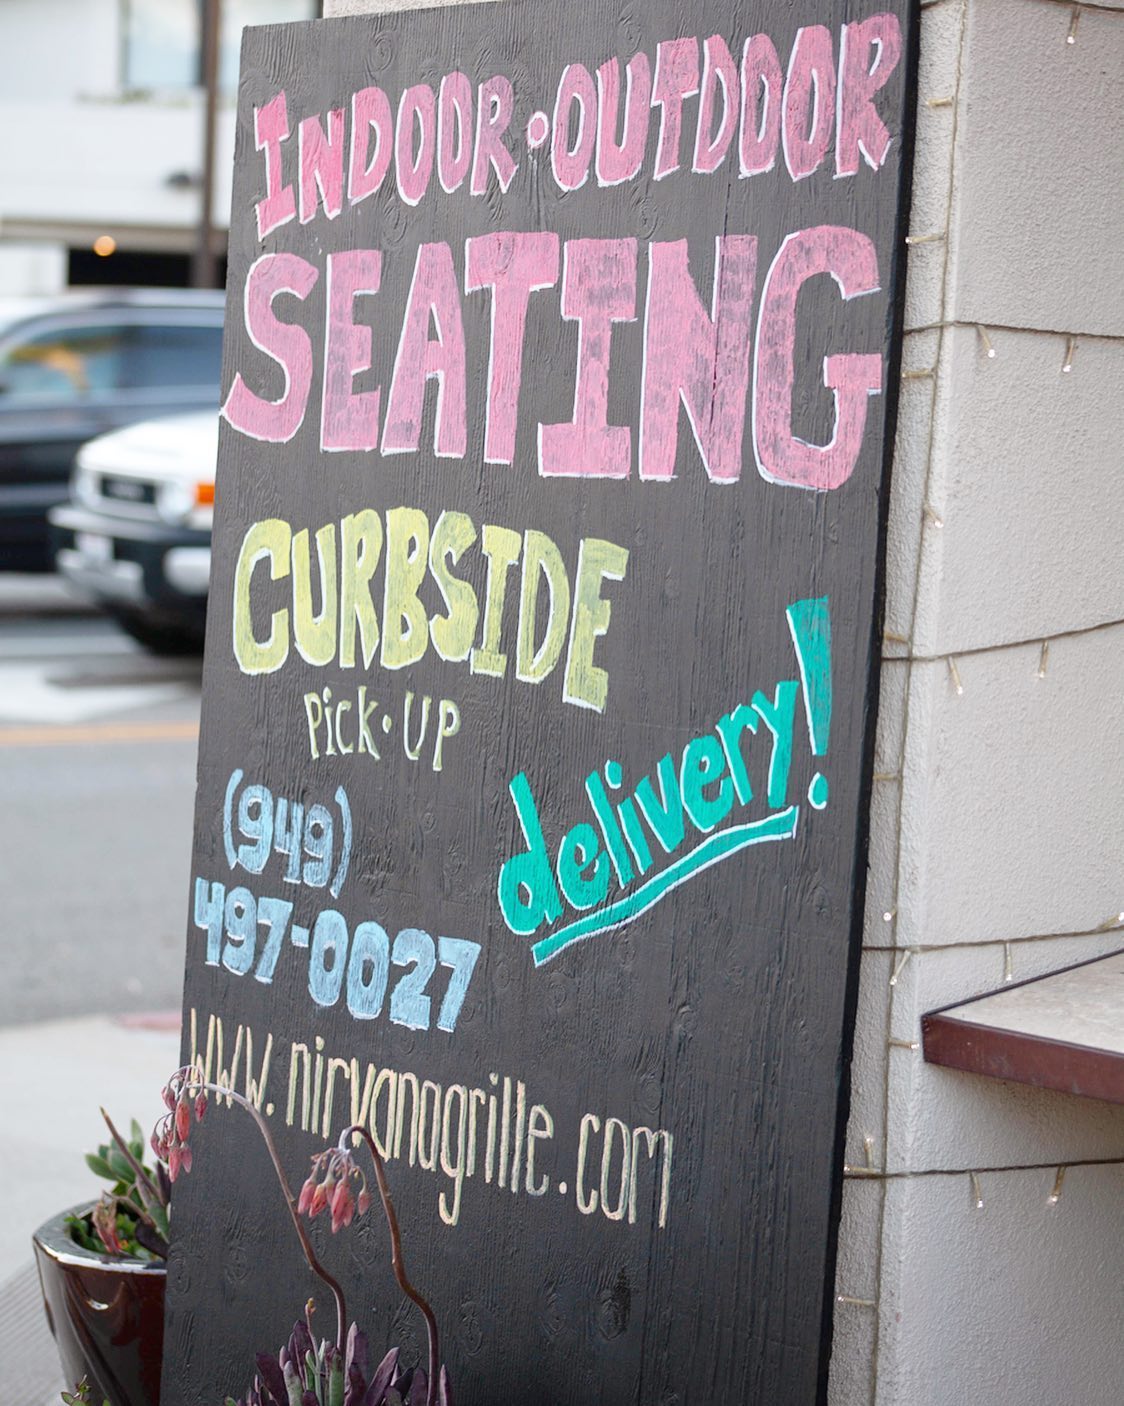 INDOOR • OUTDOOR
SEATING
CURBSIDE
Pick • UP
delivery!
(949)
497-0027
www.nirvanagrille.com